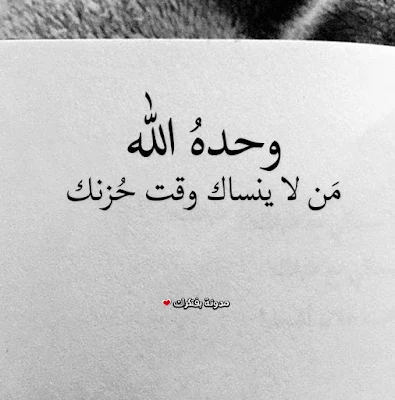 وحدهُ الله
مَن لا ينساك وقت حُزنك
مدونة بفكرك ❤